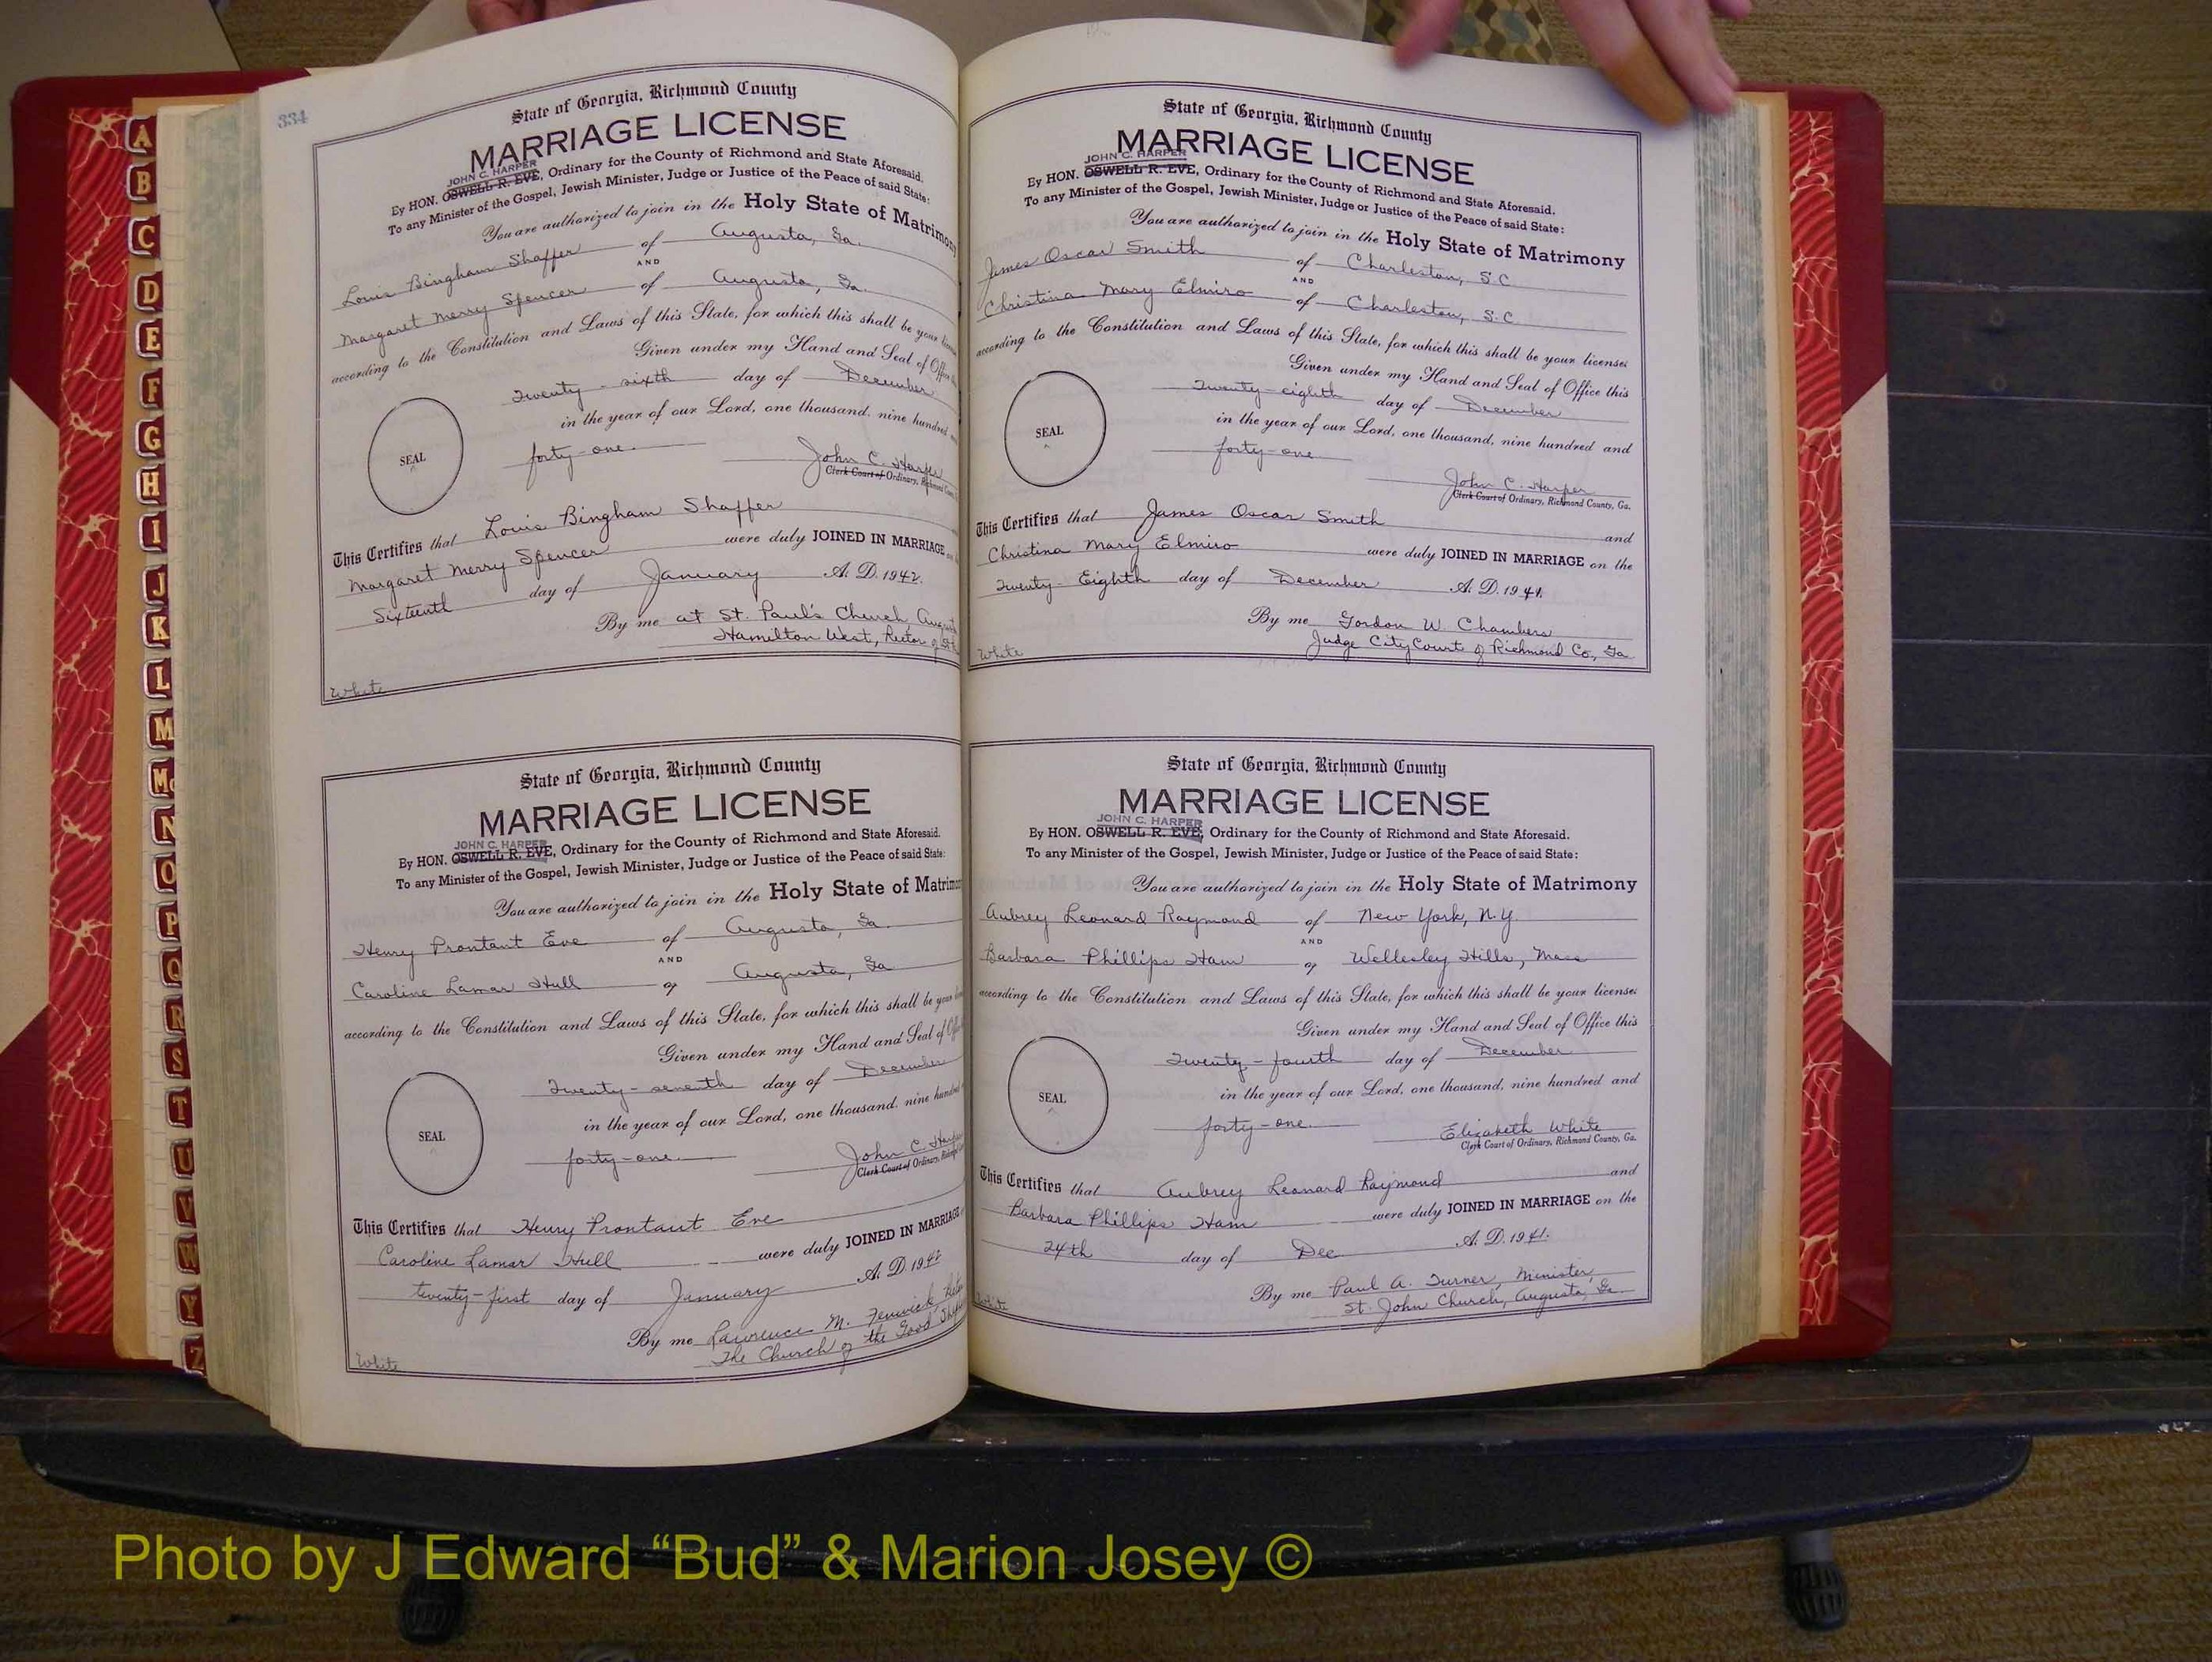 334
State of Georgia, Richmond County
MARRIAGE LICENSE
JOHN C. HARPER
By HON. OSWELL R. EVE, Ordinary for the County of Richmond and State Aforesaid.
To any Minister of the Gospel, Jewish Minister, Judge or Justice of the Peace of said State:
You are authorized to join in the Holy State of Matrimony
Louis Bingham Shaffer of Augusta, Ga.
AND
Margaret Merry Spencer of Augusta, Ga.
according to the Constitution and Laws of this State, for which this shall be your
Given under my Hand and Seal of Office
Twenty-sixth day of December
in the year of our Lord, one thousand, nine hundred
forty-one.
SEAL
John C. Harper
Clerk Court of Ordinary, Richmond
This Certifies that Louis Bingham Shaffer
Margaret Merry Spencer were duly JOINED IN MARRIAGE
Sixteenth day of January A. D. 1942.
By me at St. Paul's Church,
Hamilton West, Rector of
White
State of Georgia, Richmond County
MARRIAGE LICENSE
JOHN C. HARPER
By HON. OSWELL R. EVE, Ordinary for the County of Richmond and State Aforesaid.
To any Minister of the Gospel, Jewish Minister, Judge or Justice of the Peace of said State:
You are authorized to join in the Holy State of
Henry Prontaut Eve of Augusta, Ga.
AND
Caroline Lamar Hull of Augusta, Ga
according to the Constitution and Laws of this State, for which this shall be your
Given under my Hand and Seal of
Twenty-seventh day of December
in the year of our Lord, one thousand, nine
forty-one.
SEAL
John C.
Clerk Court of Ordinary,
This Certifies that Henry Prontaut Eve
Caroline Lamar Hull were duly JOINED IN MARRIAGE
twenty-first day of January A. D. 1942
By me Lawrence M. Fenwick,
The Church of the Good
White
State of Georgia, Richmond County
MARRIAGE LICENSE
JOHN C. HARPER
By HON. OSWELL R. EVE, Ordinary for the County of Richmond and State Aforesaid.
To any Minister of the Gospel, Jewish Minister, Judge or Justice of the Peace of said State:
You are authorized to join in the Holy State of Matrimony
James Oscar Smith of Charleston, S.C.
AND
Christina Mary Elmiro of Charleston, S.C.
according to the Constitution and Laws of this State, for which this shall be your license:
Given under my Hand and Seal of Office this
Twenty-eighth day of December
in the year of our Lord, one thousand, nine hundred and
forty-one.
SEAL
John C. Harper
Clerk Court of Ordinary, Richmond County, Ga.
This Certifies that James Oscar Smith and
Christina Mary Elmiro were duly JOINED IN MARRIAGE on the
Twenty-Eighth day of December A. D. 1941.
By me Gordon W. Chambers
Judge City Court of Richmond Co., Ga
White
State of Georgia, Richmond County
MARRIAGE LICENSE
JOHN C. HARPER
By HON. OSWELL R. EVE, Ordinary for the County of Richmond and State Aforesaid.
To any Minister of the Gospel, Jewish Minister, Judge or Justice of the Peace of said State:
You are authorized to join in the Holy State of Matrimony
Aubrey Leonard Raymond of New York, N.Y.
AND
Barbara Phillips Ham of Wellesley Hills, Mass
according to the Constitution and Laws of this State, for which this shall be your license:
Given under my Hand and Seal of Office this
Twenty-fourth day of December
in the year of our Lord, one thousand, nine hundred and
forty-one.
SEAL
Elizabeth White
Clerk Court of Ordinary, Richmond County, Ga.
This Certifies that Aubrey Leonard Raymond and
Barbara Phillips Ham were duly JOINED IN MARRIAGE on the
24th day of Dec A. D. 1941.
By me Paul A. Turner, Minister,
St. John Church, Augusta, Ga.
White
A
B
C
D
E
F
G
H
I
J
K
L
M
Mc
N
O
P
Q
R
S
T
U
V
W
Y
Z
Photo by J Edward “Bud” & Marion Josey ©